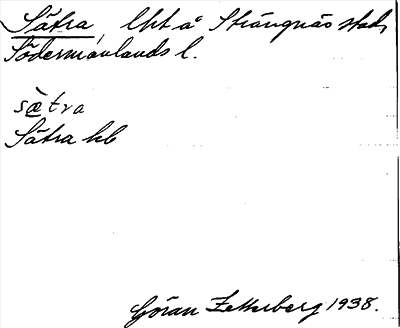 Sätra, lht å Strängnäs stad,
Södermanlands l.
sæ̀tra
Sätra hb
Göran Zetterberg 1938.